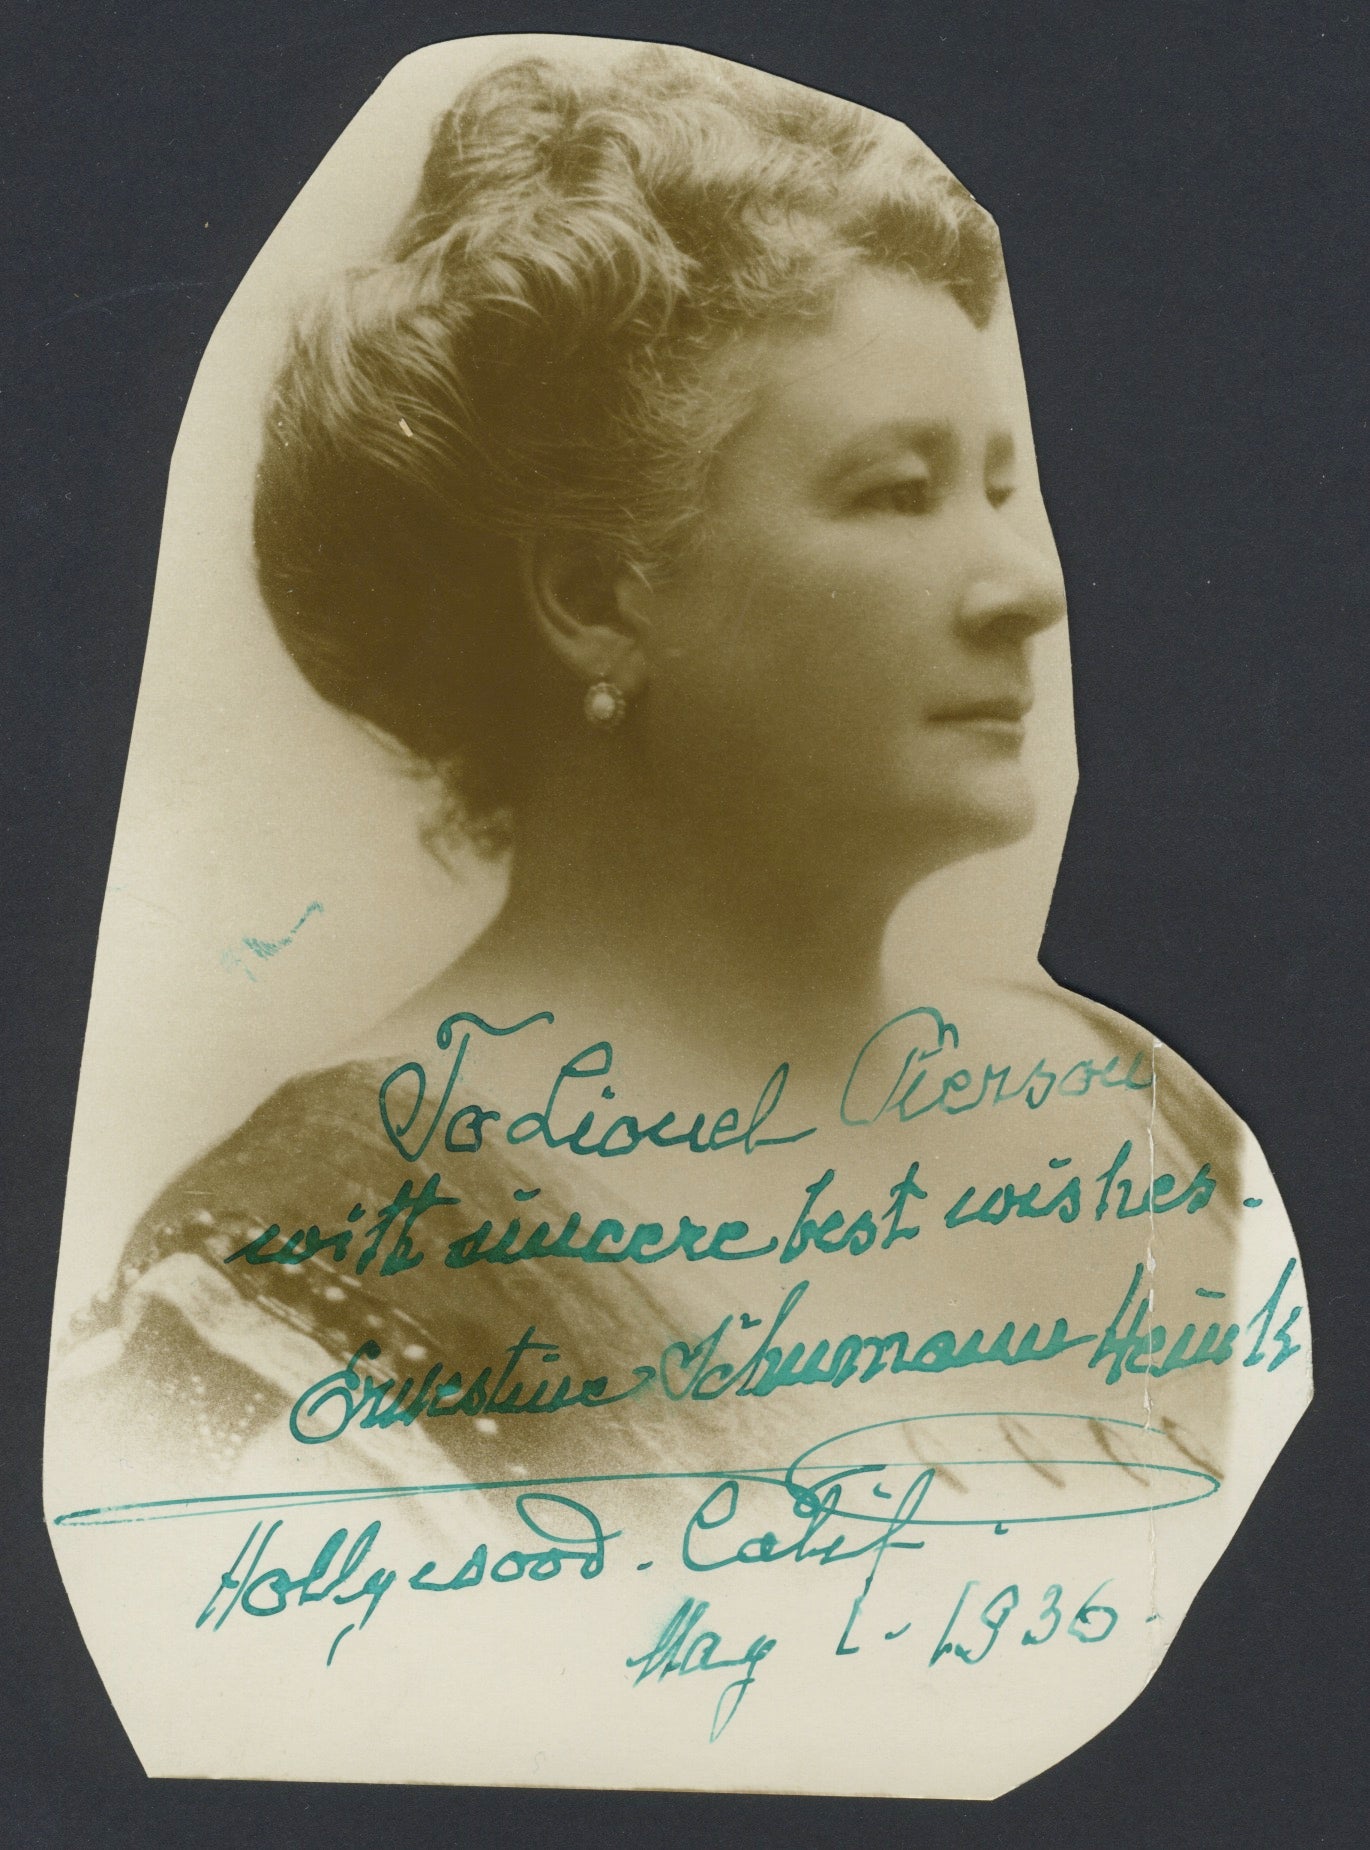 To Lionel Pierson
with sincere best wishes.
Ernestine Schumann Heink
Hollywood. Calif
May 1. 1936.